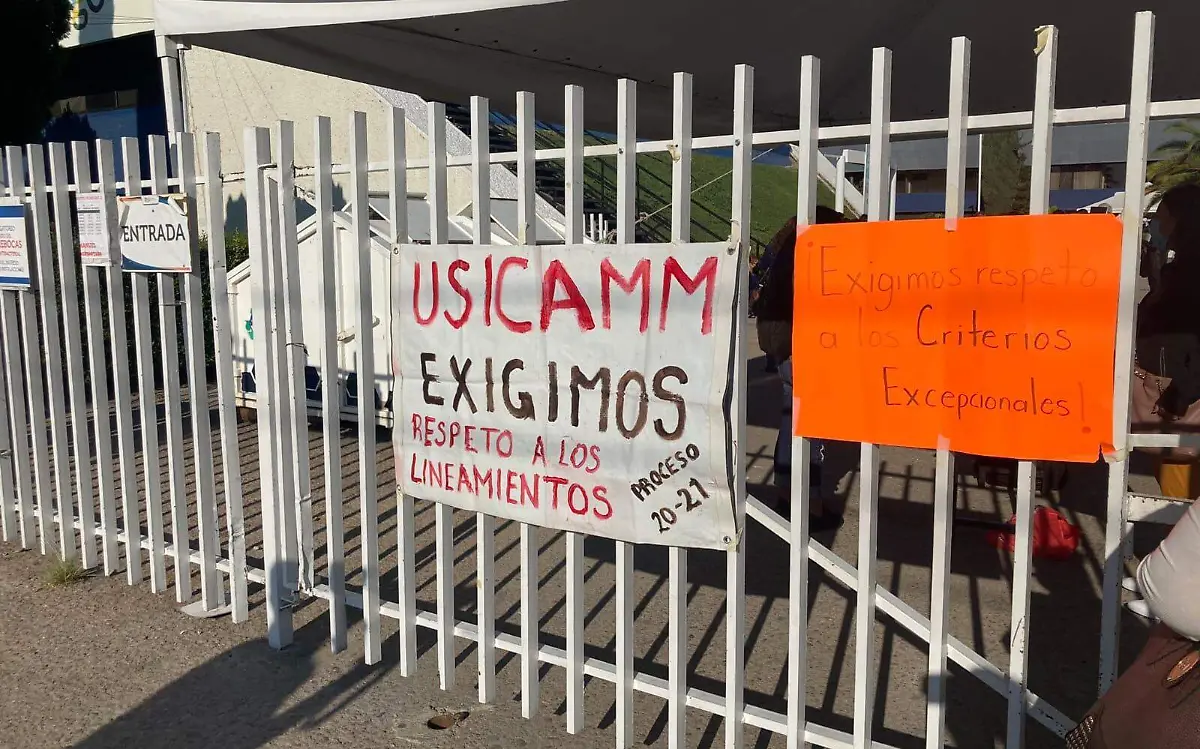 ENTRADA
USICAMM
EXIGIMOS
RESPETO A LOS
LINEAMIENTOS
PROCESO
20-21
¡Exigimos respeto
a los Criterios
Excepcionales!